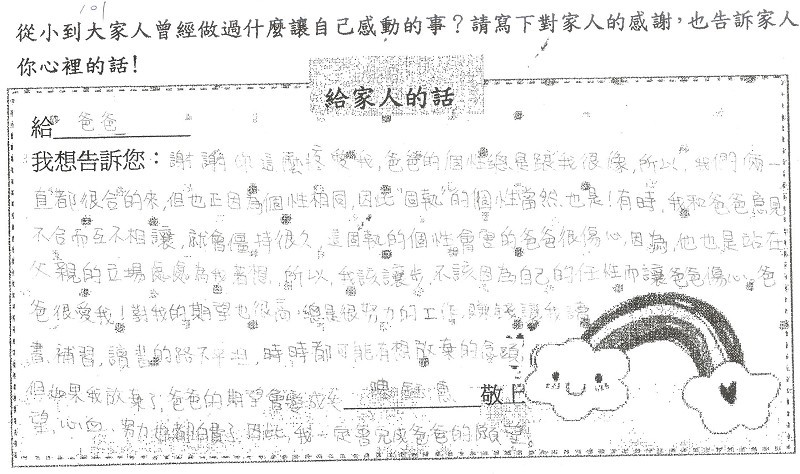 101
從小到大家人曾經做過什麼讓自己感動的事？請寫下對家人的感謝，也告訴家人
你心裡的話！
給家人的話
給 爸爸
我想告訴您：謝謝你這麼疼愛我，爸爸的個性總是跟我很像，所以，我們倆一
直都很合的來，但也正因為個性相同，因此"固執"的個性當然也是！有時，我和爸爸意見
不合而互不相讓，就會僵持很久，這固執的個性會害的爸爸很傷心，因為，他也是站在
父親的立場處處為我著想，所以，我該讓步，不該因為自己的任性而讓爸爸傷心。爸
爸很愛我！對我的期望也很高，總是很努力的工作，賺錢讓我讀
書、補習，讀書的路不平坦，時時都可能有想放棄的念頭，
但如果我放棄了，爸爸的期望會變成失 敬上
望，心血、努力也都白費了，因此，我一定會完成爸爸的願望。